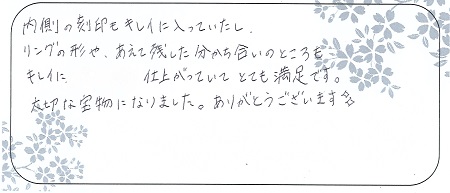 内側の刻印もキレイに入っていたし、
リングの形や、あえて残した分かち合いのところも
キレイに 仕上がっていて とても満足です。
大切な宝物になりました。ありがとうございます☆